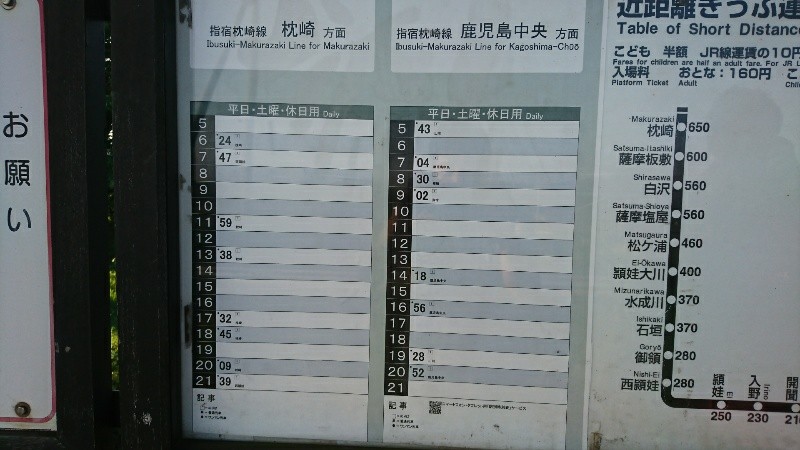 お願い
指宿枕崎線 枕崎 方面
Ibusuki-Makurazaki Line for Makurazaki
平日・土曜・休日用 Daily
5
6 24
7 47
8
9
10
11 59
12
13 38
14
15
16
17 32
18 45
19
20 09
21 39
記事
指宿枕崎線 鹿児島中央 方面
Ibusuki-Makurazaki Line for Kagoshima-Chūō
平日・土曜・休日用 Daily
5 43
6
7 04
8 30
9 02
10
11
12
13
14 18
15
16 56
17
18
19 28
20 52
21
記事
近距離きっぷ運
Table of Short Distanc
こども 半額 JR線運賃の10円
Fares for children are half an adult fare. For JR L
入場料 おとな：160円 こ
Platform Ticket Adult Chi
Makurazaki
枕崎 650
Satsuma-Itashiki
薩摩板敷 600
Shirasawa
白沢 560
Satsuma-Shioya
薩摩塩屋 560
Matsugaura
松ケ浦 460
Ei-Ōkawa
頴娃大川 400
Mizunarikawa
水成川 370
Ishikaki
石垣 370
Goryō
御領 280
Nishi-Ei
西頴娃 280
頴娃 Ei 250
入野 Irino 230
開聞 21